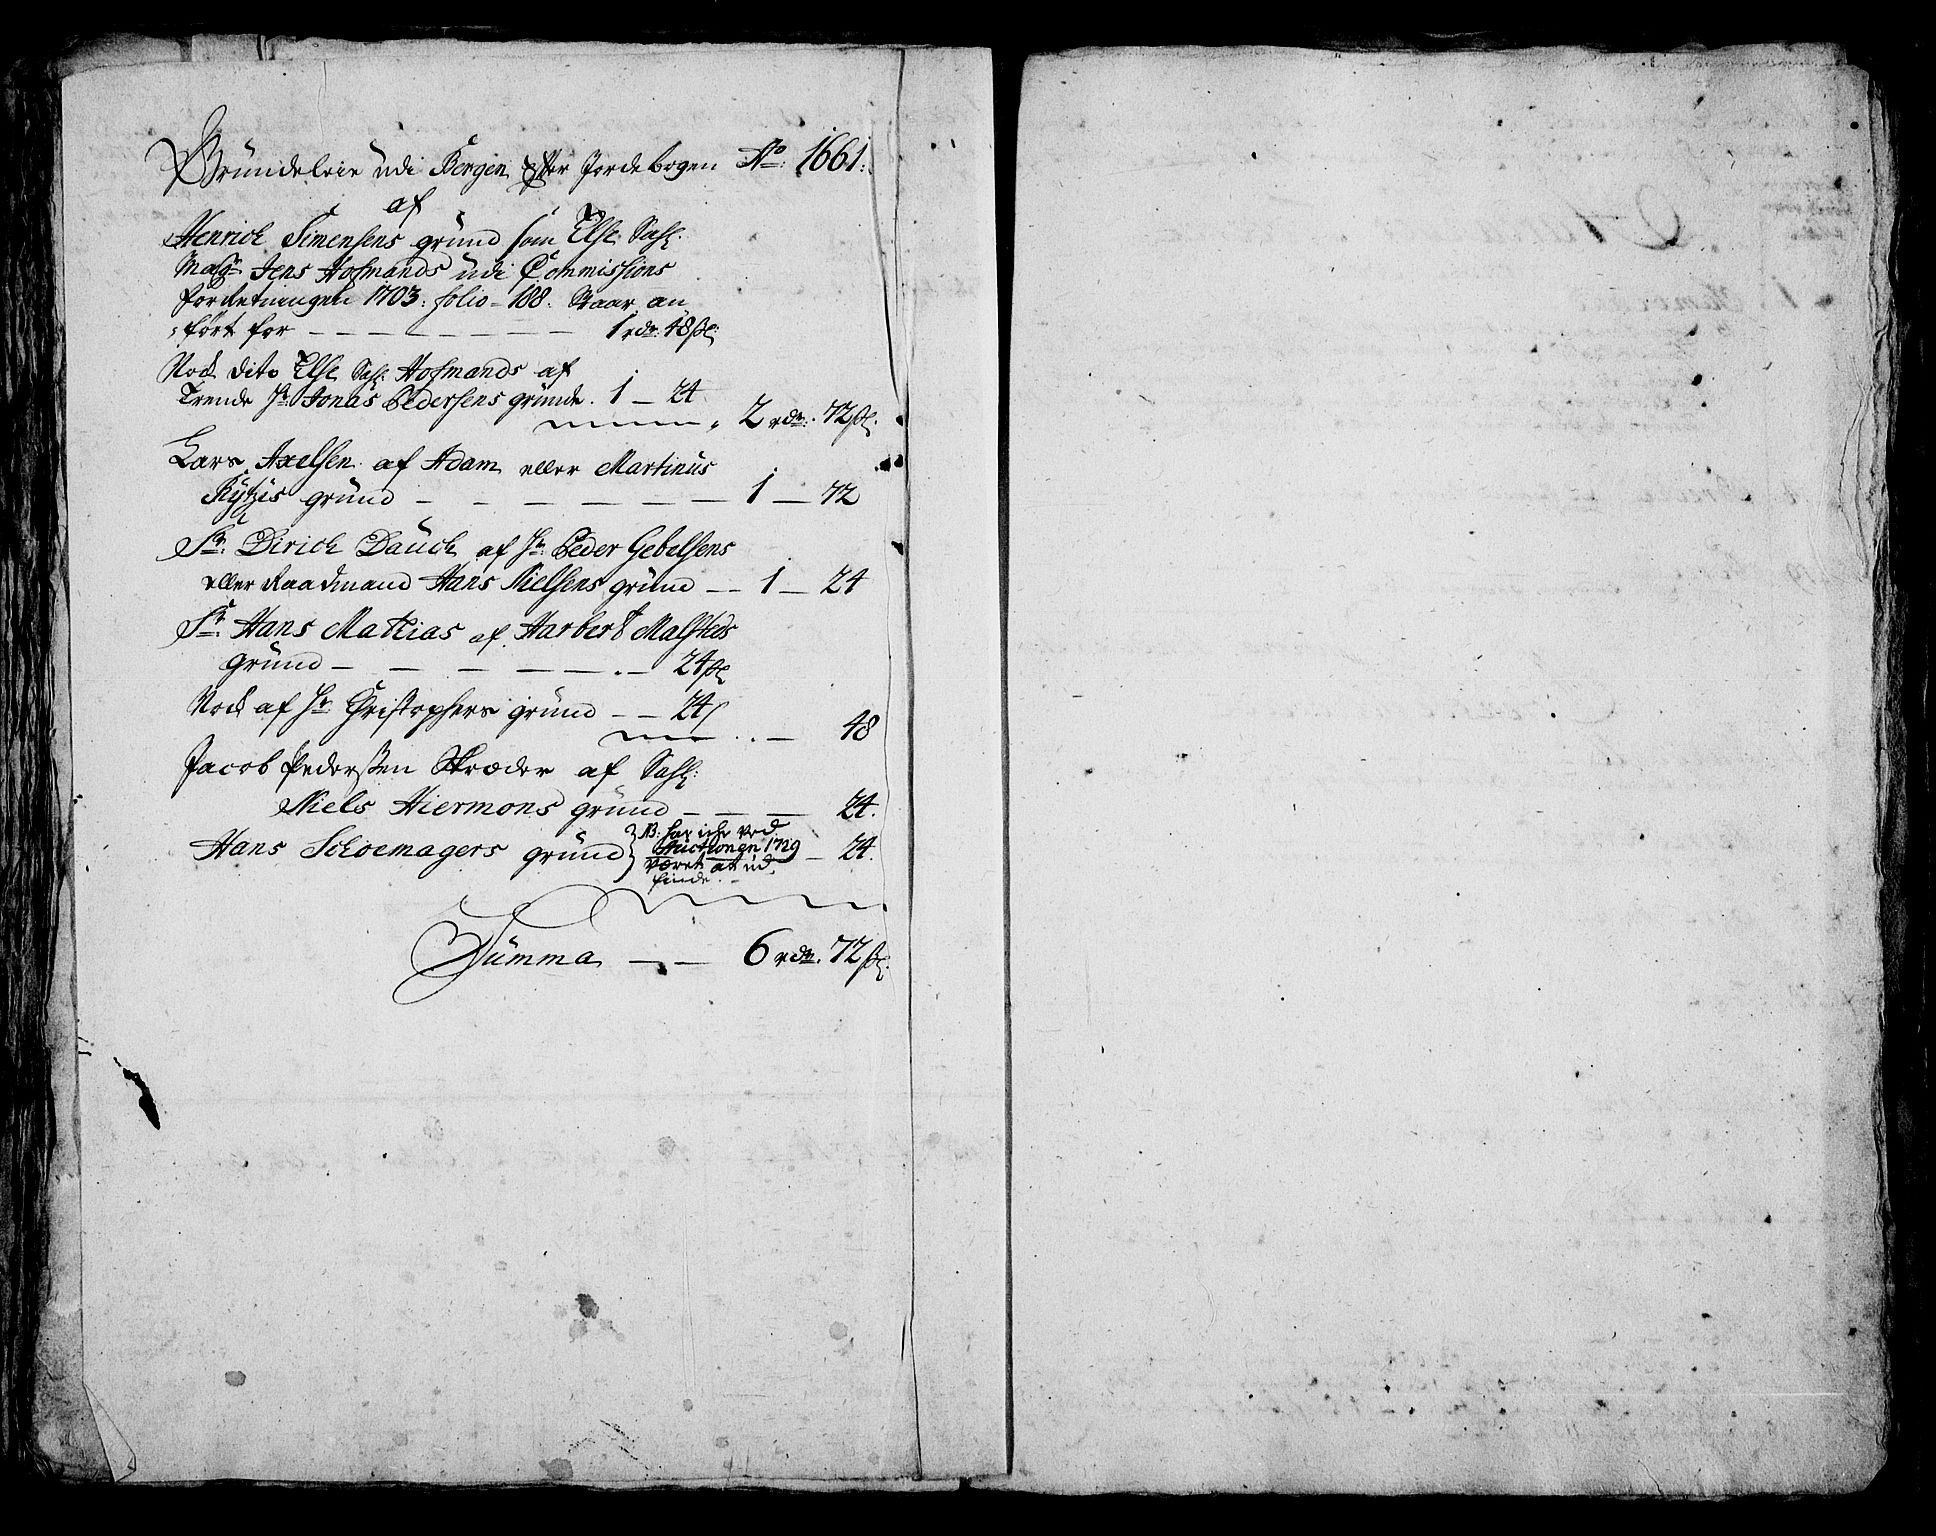 Gründeleie udi Bergen efter Jordebogen Ao: 1661:
af
Henrich Simensens grund som Else Sahl:
Magr. Jens Hofmands udi Commissions
forretningen 1703: folio - 188. Staar an
-ført for - - - - - - - - 1 rdr: 48 sk:
Noch dito Else Sahl: Hofmands af
Trende Hr: Jonas Pedersens gründe. 1 - 24
2 rdr: 72 sk.
Lars Axelsen af Adam eller Martinus
grund - - - - - - 1 - 72
Sr: Dirich Dauch af Hr: Peder Gebelsens
eller Raadmand Hans Nielsens grund - - 1 - 24
Sr: Hans Mathias af Harbert Malsteds
grund - - - - - - 24 sk
Noch af Hr: Christophers grund - - 24
- 48
Jacob Pedersen Skræder af Sahl:
Niels Hiermons grund - - - - 24.
Hans Schoemagers grund NB: har iche ved - 24.
Auctionen 1729
været at ud
finde.
Summa - - 6 rdr. 72 sk.